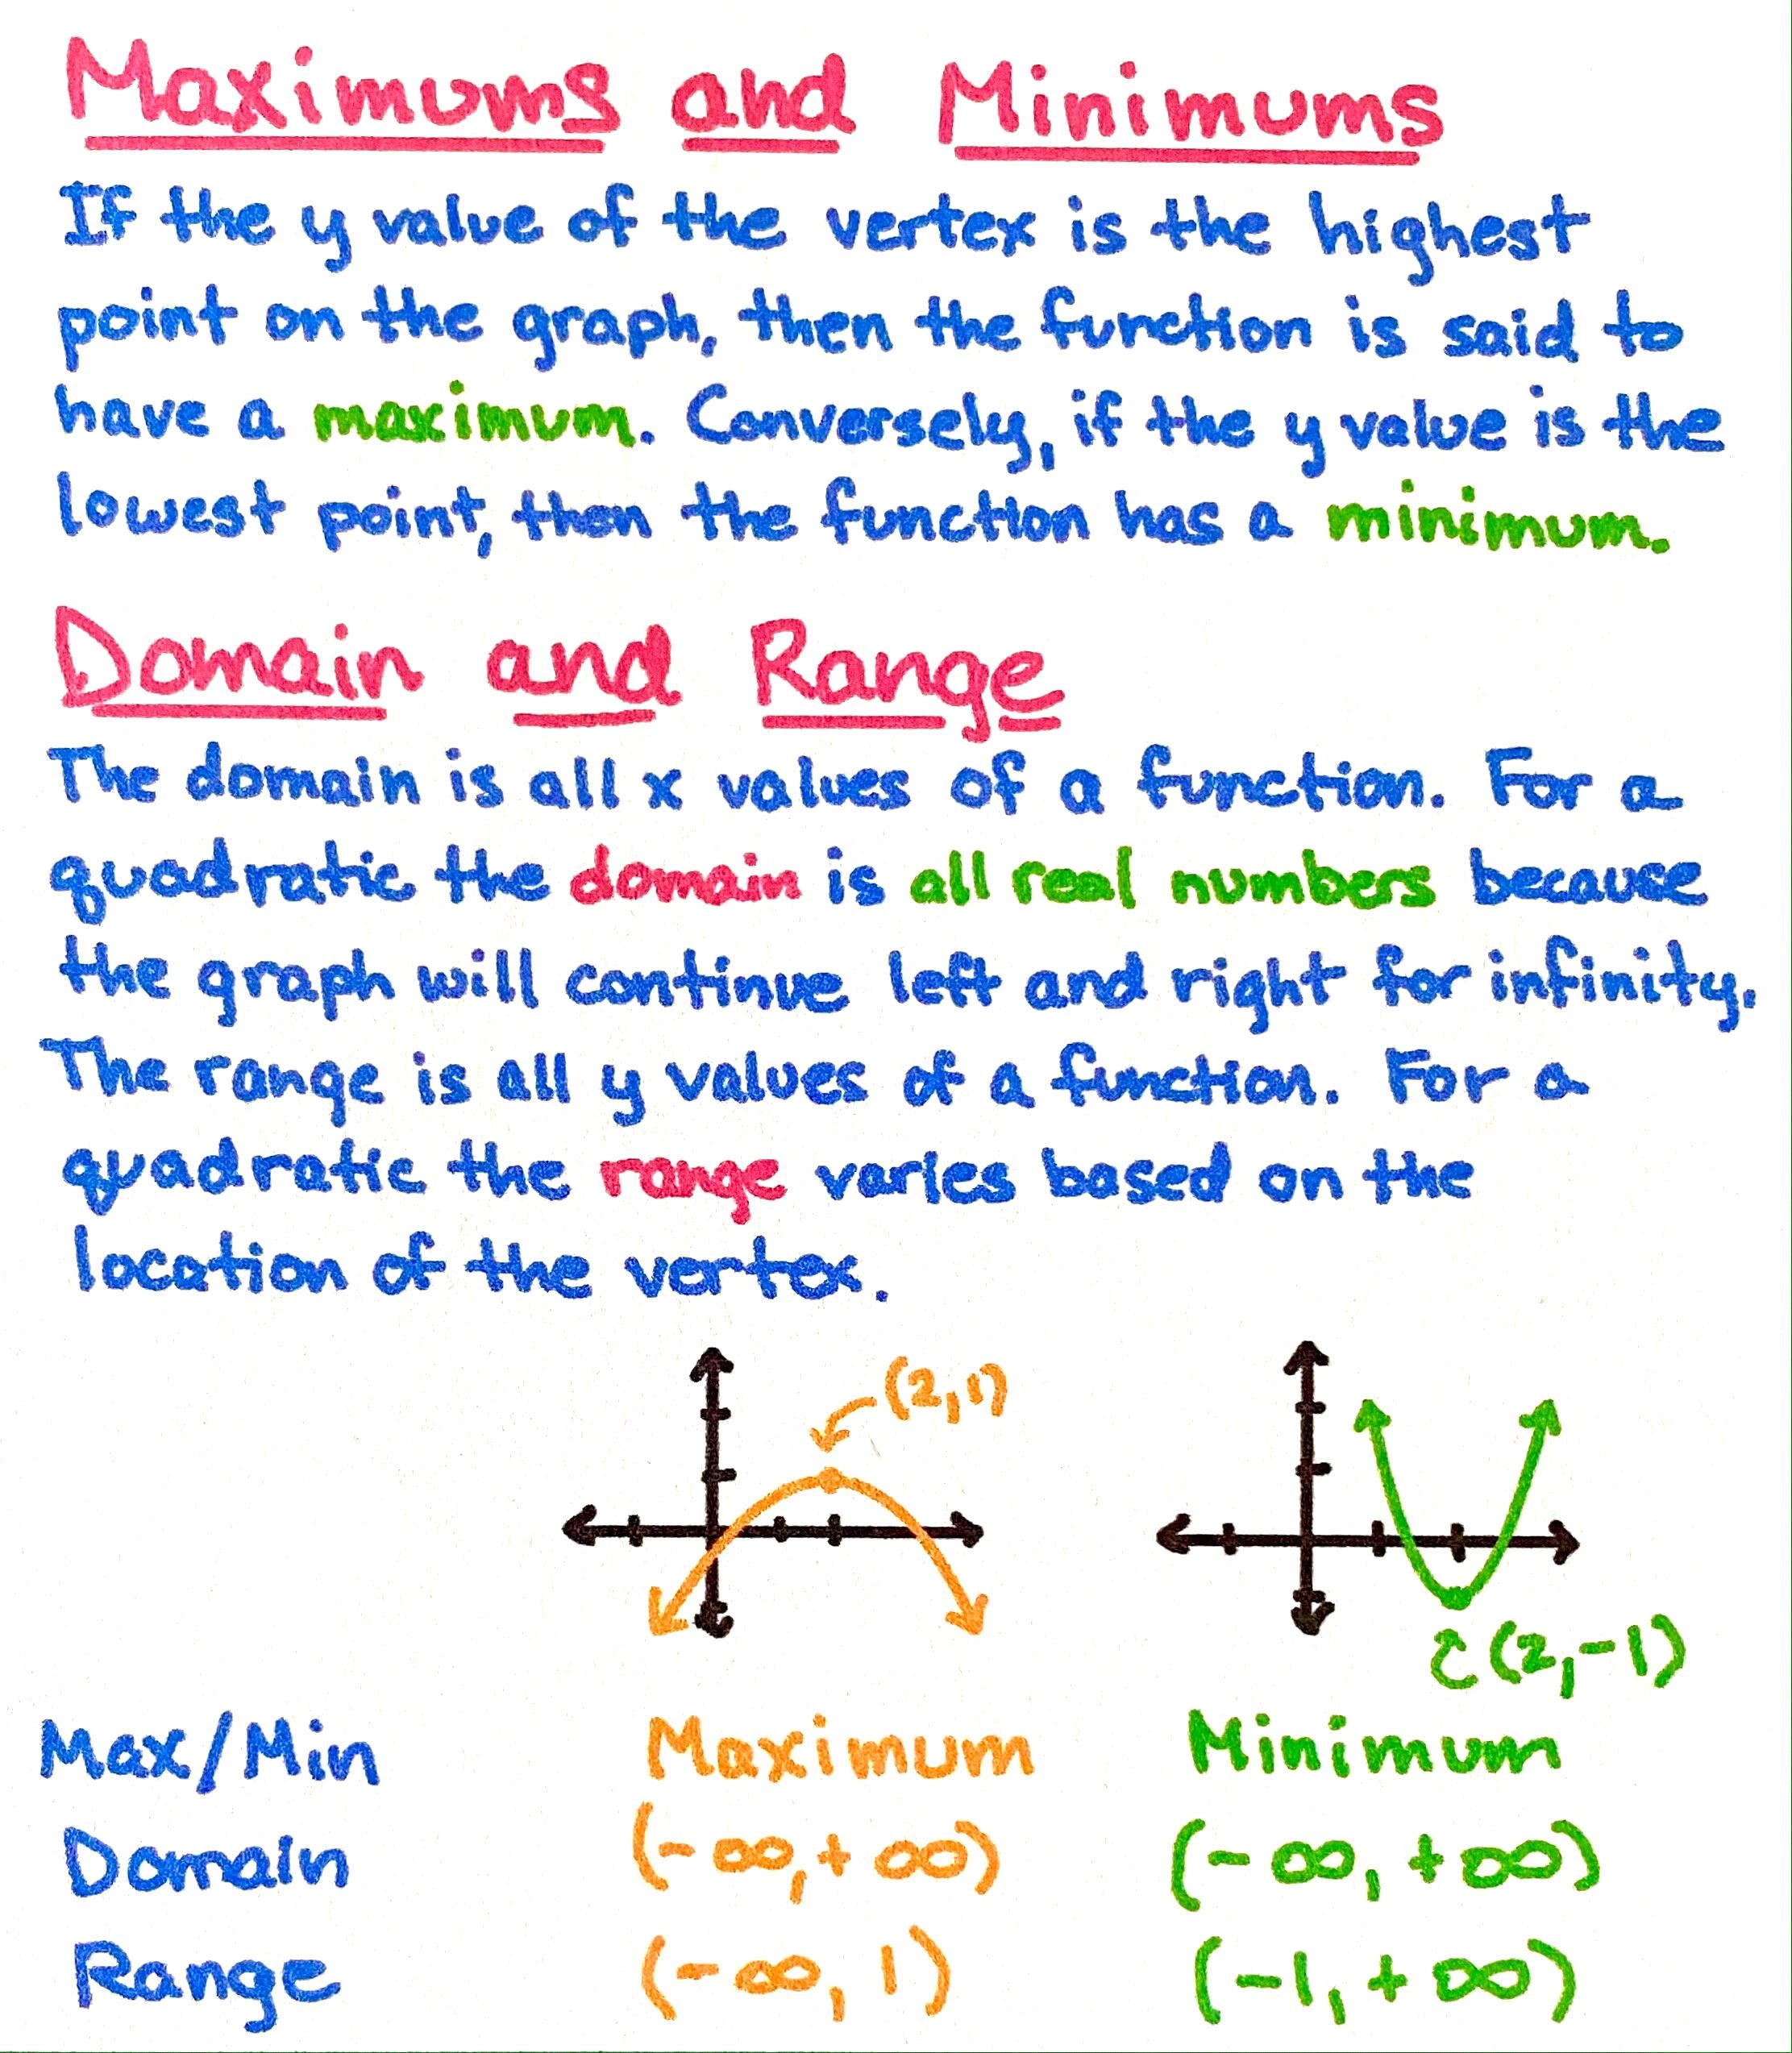 Maximums and Minimums
If the y value of the vertex is the highest
point on the graph, then the function is said to
have a maximum. Conversely, if the y value is the
lowest point, then the function has a minimum.
Domain and Range
The domain is all x values of a function. For a
quadratic the domain is all real numbers because
the graph will continue left and right for infinity.
The range is all y values of a function. For a
quadratic the range varies based on the
location of the vertex.
(2,1)
(2,-1)
Max/Min Maximum Minimum
Domain (-∞,+∞) (-∞,+∞)
Range (-∞,1) (-1,+∞)